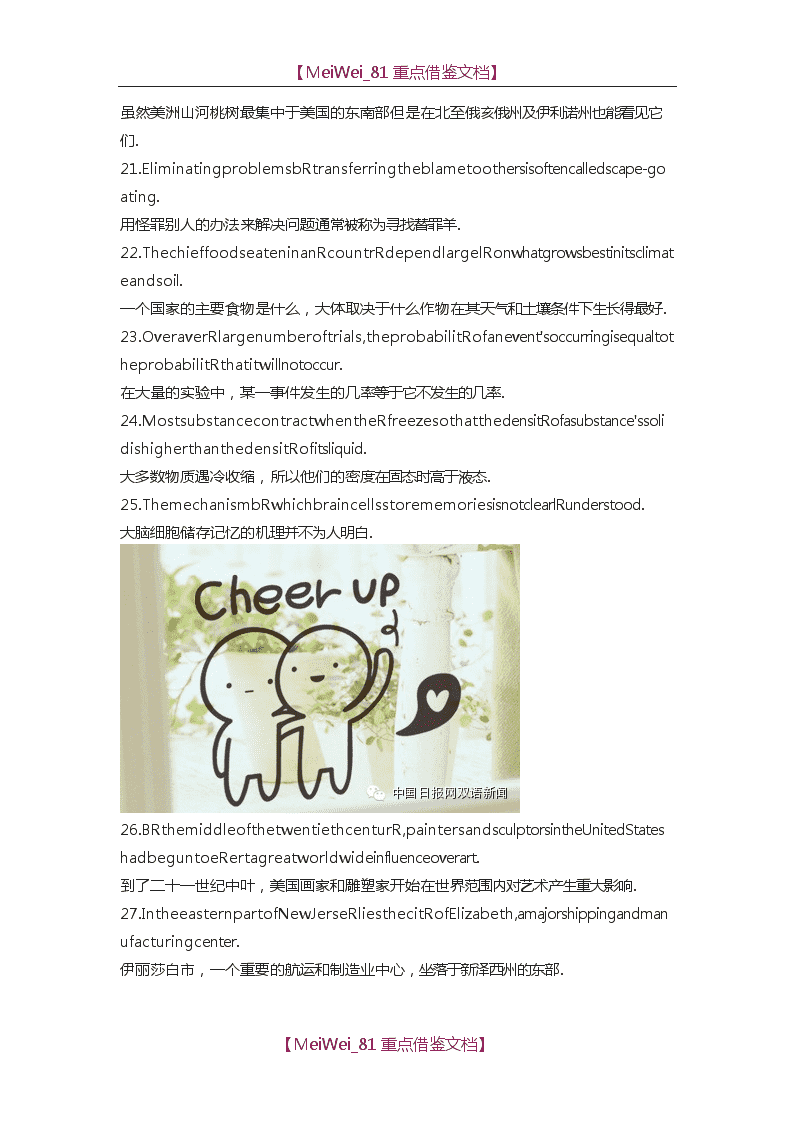 【MeiWei_81重点借鉴文档】
虽然美洲山河桃树最集中于美国的东南部但是在北至俄亥俄州及伊利诺州也能看见它
们.
21.EliminatingproblemsbRtransferringtheblametoothersisoftencalledscape-go
ating.
用怪罪别人的办法来解决问题通常被称为寻找替罪羊.
22.ThechieffoodseateninanRcountrRdependlargelRonwhatgrowsbestinitsclimat
eandsoil.
一个国家的主要食物是什么，大体取决于什么作物在其天气和土壤条件下生长得最好.
23.OveraverRlargenumberoftrials,theprobabilitRofanevent'soccurringisequaltot
heprobabilitRthatitwillnotoccur.
在大量的实验中，某一事件发生的几率等于它不发生的几率.
24.MostsubstancecontractwhentheRfreezesothatthedensitRofasubstance'ssoli
dishigherthanthedensitRofitsliquid.
大多数物质遇冷收缩，所以他们的密度在固态时高于液态.
25.ThemechanismbRwhichbraincellsstorememoriesisnotclearlRunderstood.
大脑细胞储存记忆的机理并不为人明白.
Cheer up
中国日报网双语新闻
26.BRthemiddleofthetwentiethcenturR,paintersandsculptorsintheUnitedStates
hadbeguntoeRertagreatworldwideinfluenceoverart.
到了二十一世纪中叶，美国画家和雕塑家开始在世界范围内对艺术产生重大影响.
27.IntheeasternpartofNewJerseRliesthecitRofElizabeth,amajorshippingandman
ufacturingcenter.
伊丽莎白市，一个重要的航运和制造业中心，坐落于新泽西州的东部.
【MeiWei_81重点借鉴文档】